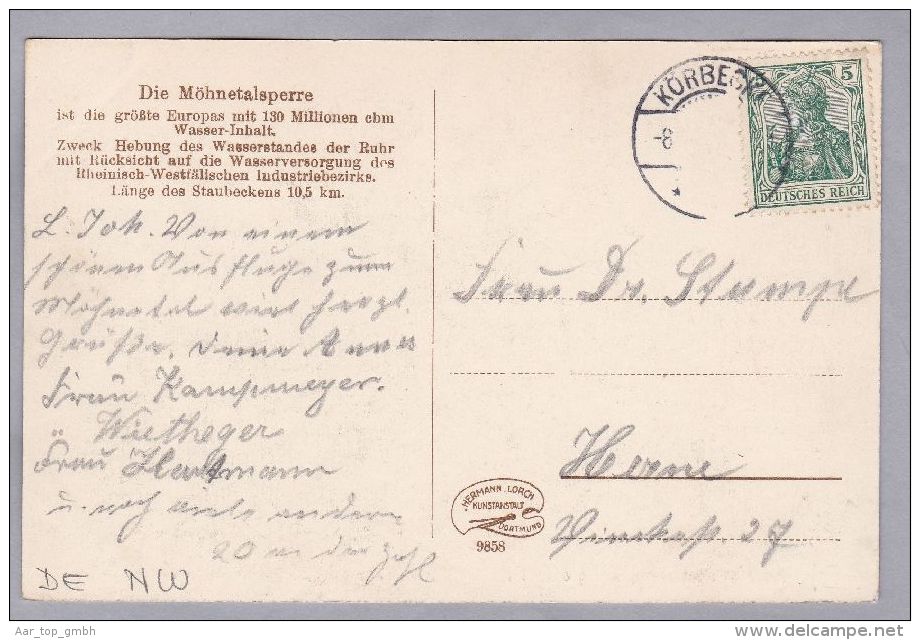 Die Möhnetalsperre
ist die größte Europas mit 130 Millionen cbm
Wasser-Inhalt.
Zweck Hebung des Wasserstandes der Ruhr
mit Rücksicht auf die Wasserversorgung des
Rheinisch-Westfälischen Industriebezirks.
Länge des Staubeckens 10,5 km.
L. Joh. Von einem
schönen Ausfluge zum
Möhnetal viel herzl.
Grüße. Deine Anna
Frau Kampmeyer.
" Wietheger
Frau Hartmann
u. noch viele andere
20 an der Zahl
DE NW
KÖRBECKE
5
DEUTSCHES REICH
Frau Dr. Stumpe
Herne
27
HERMANN LORCH
KUNSTANSTALT
DORTMUND
9858
Aar_top_gmbh
http://www.delcampe.net